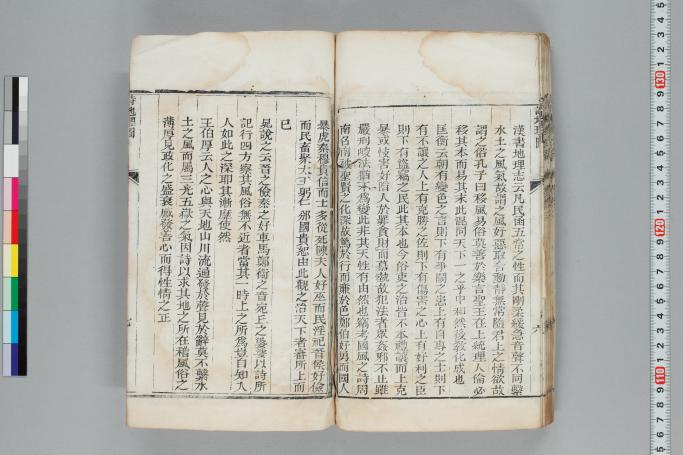 漢書地理志云凡民函五常之性而其剛柔緩急音聲不同繫
水土之風氣故謂之風好惡取舍動靜無常隨君上之情欲故
謂之俗孔子曰移風易俗莫善於樂言聖王在上統理人倫必
移其本而易其末此混同天下一之虖中和然後教化成也
匡衡云朝有變色之言則下有爭鬭之患上有自專之士則下
有不讓之人上有克勝之佐則下有傷害之心上有好利之臣
則下有盜竊之民此其本也今俗吏之治皆不本禮讓而上克
暴或忮害好陷人於罪貪財而慕勢故犯法者眾姦邪不止雖
嚴刑峻法猶不爲變此非其天性有由然也竊考國風之詩周
南召南被聖賢之化深故篤於行而廉於色鄭伯好勇而國人
暴虎秦穆貴信而士多從死陳夫人好巫而民淫祀晉侯好儉
而民畜聚太王躬仁邠國貴恕由此觀之治天下者審所上而
已
晁說之云晉之儉秦之好車馬鄭衛之音宛丘之婆娑以詩所
記行四方察其風俗無不近者當其一時上之所爲豈自知入
人如此之深卽其漸靡使然
王伯厚云人之心與天地山川流通發於聲見於辭莫不繫水
土之風而屬三光五嶽之氣因詩以求其地之所在稽風俗之
薄厚見政化之盛衰感發善心而得性情之正
六
七